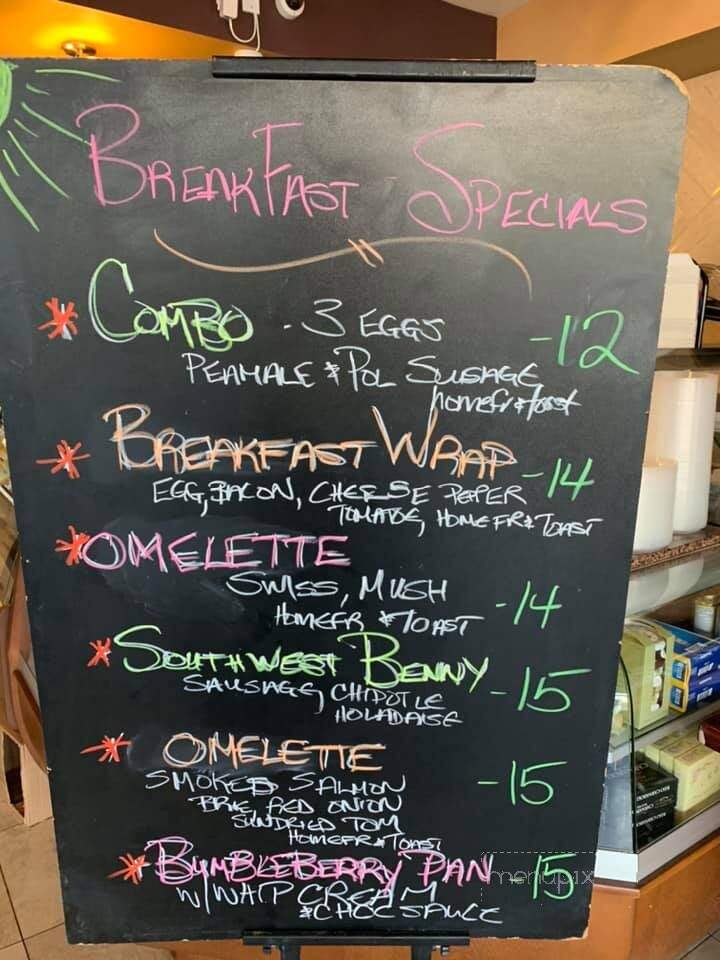 BREAKFAST SPECIALS
COMBO - 3 EGGS -12
PEAMALE & POL SUSAGE
homefr & toast
BREAKFAST WRAP -14
EGG, BACON, CHEESE PEPER
TOMATOE, HOMEFR & TOAST
OMELETTE
SWISS, MUSH -14
HOMEFR & TOAST
SOUTHWEST BENNY -15
SAUSAGE, CHIPOTLE
HOLADAISE
OMELETTE -15
SMOKED SALMON
BRIE, RED ONION
SUNDRIED TOM
HOMEFR & TOAST
BUMBLEBERRY PAN -15
W/WHIP CREAM
& CHOC SAUCE
menupix